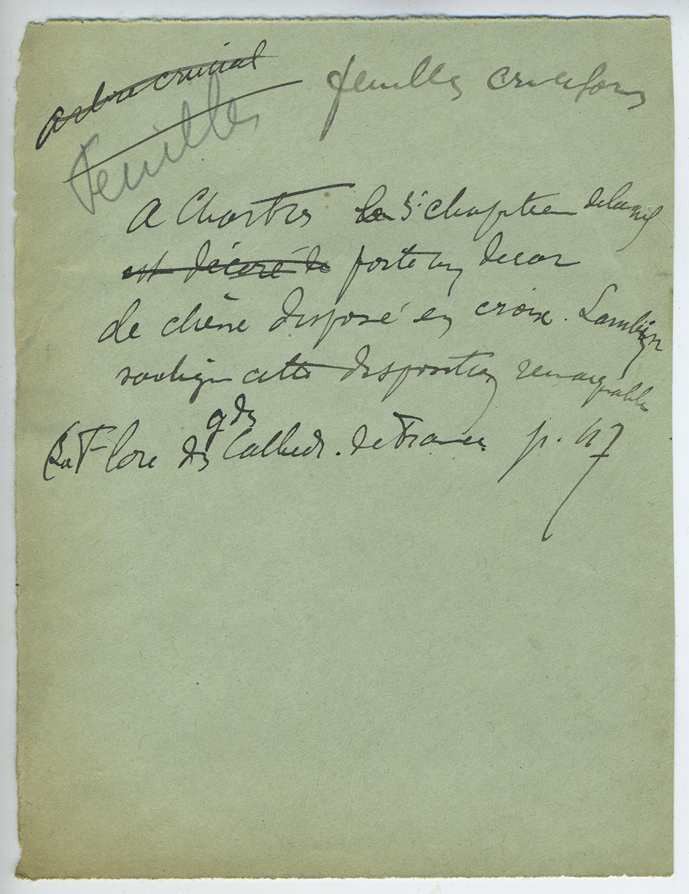 arbre crucial
Feuilles
feuilles cruciform
A Chartres le 5e chapiteau de la nef
est décoré de porte un decor
de chêne disposé en croix. Lambin
souligne cette disposition remarquable
(La Flore des gdes Cathedr. de France p. 47